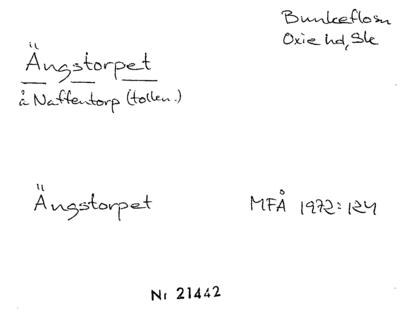 Bunkeflosn
Oxie hd, Sk
Ängstorpet
å Naffentorp (tollen.)
Ängstorpet
MFÅ 1972:124
Nr 21442